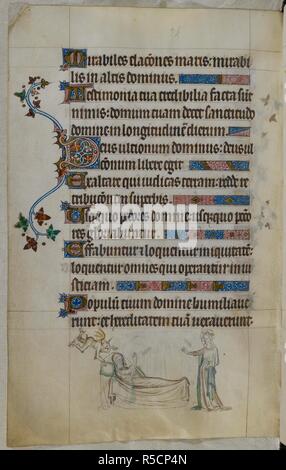 Mirabiles elac̄ones maris: mirabi
lis in altis dominus.
Testimonia tua credibilia facta sūt
nimis: domum tuam decet sanctitudo
domine in longitudinē dierum.
Deus ultionum dominus: deus ul
cionum libere egit.
Exaltare qui iudicas terram: redde re
tribucōnem superbis.
Usq̄quo peccatores domine: usq̄quo
gloriabuntur.
Effabuntur et loquentur iniquitatē:
loquentur omnes qui operantur iniu
sticiam.
Populum tuum domine humiliaue
runt: et hereditatem tuā vexauerunt.
alamy
R5CP4N